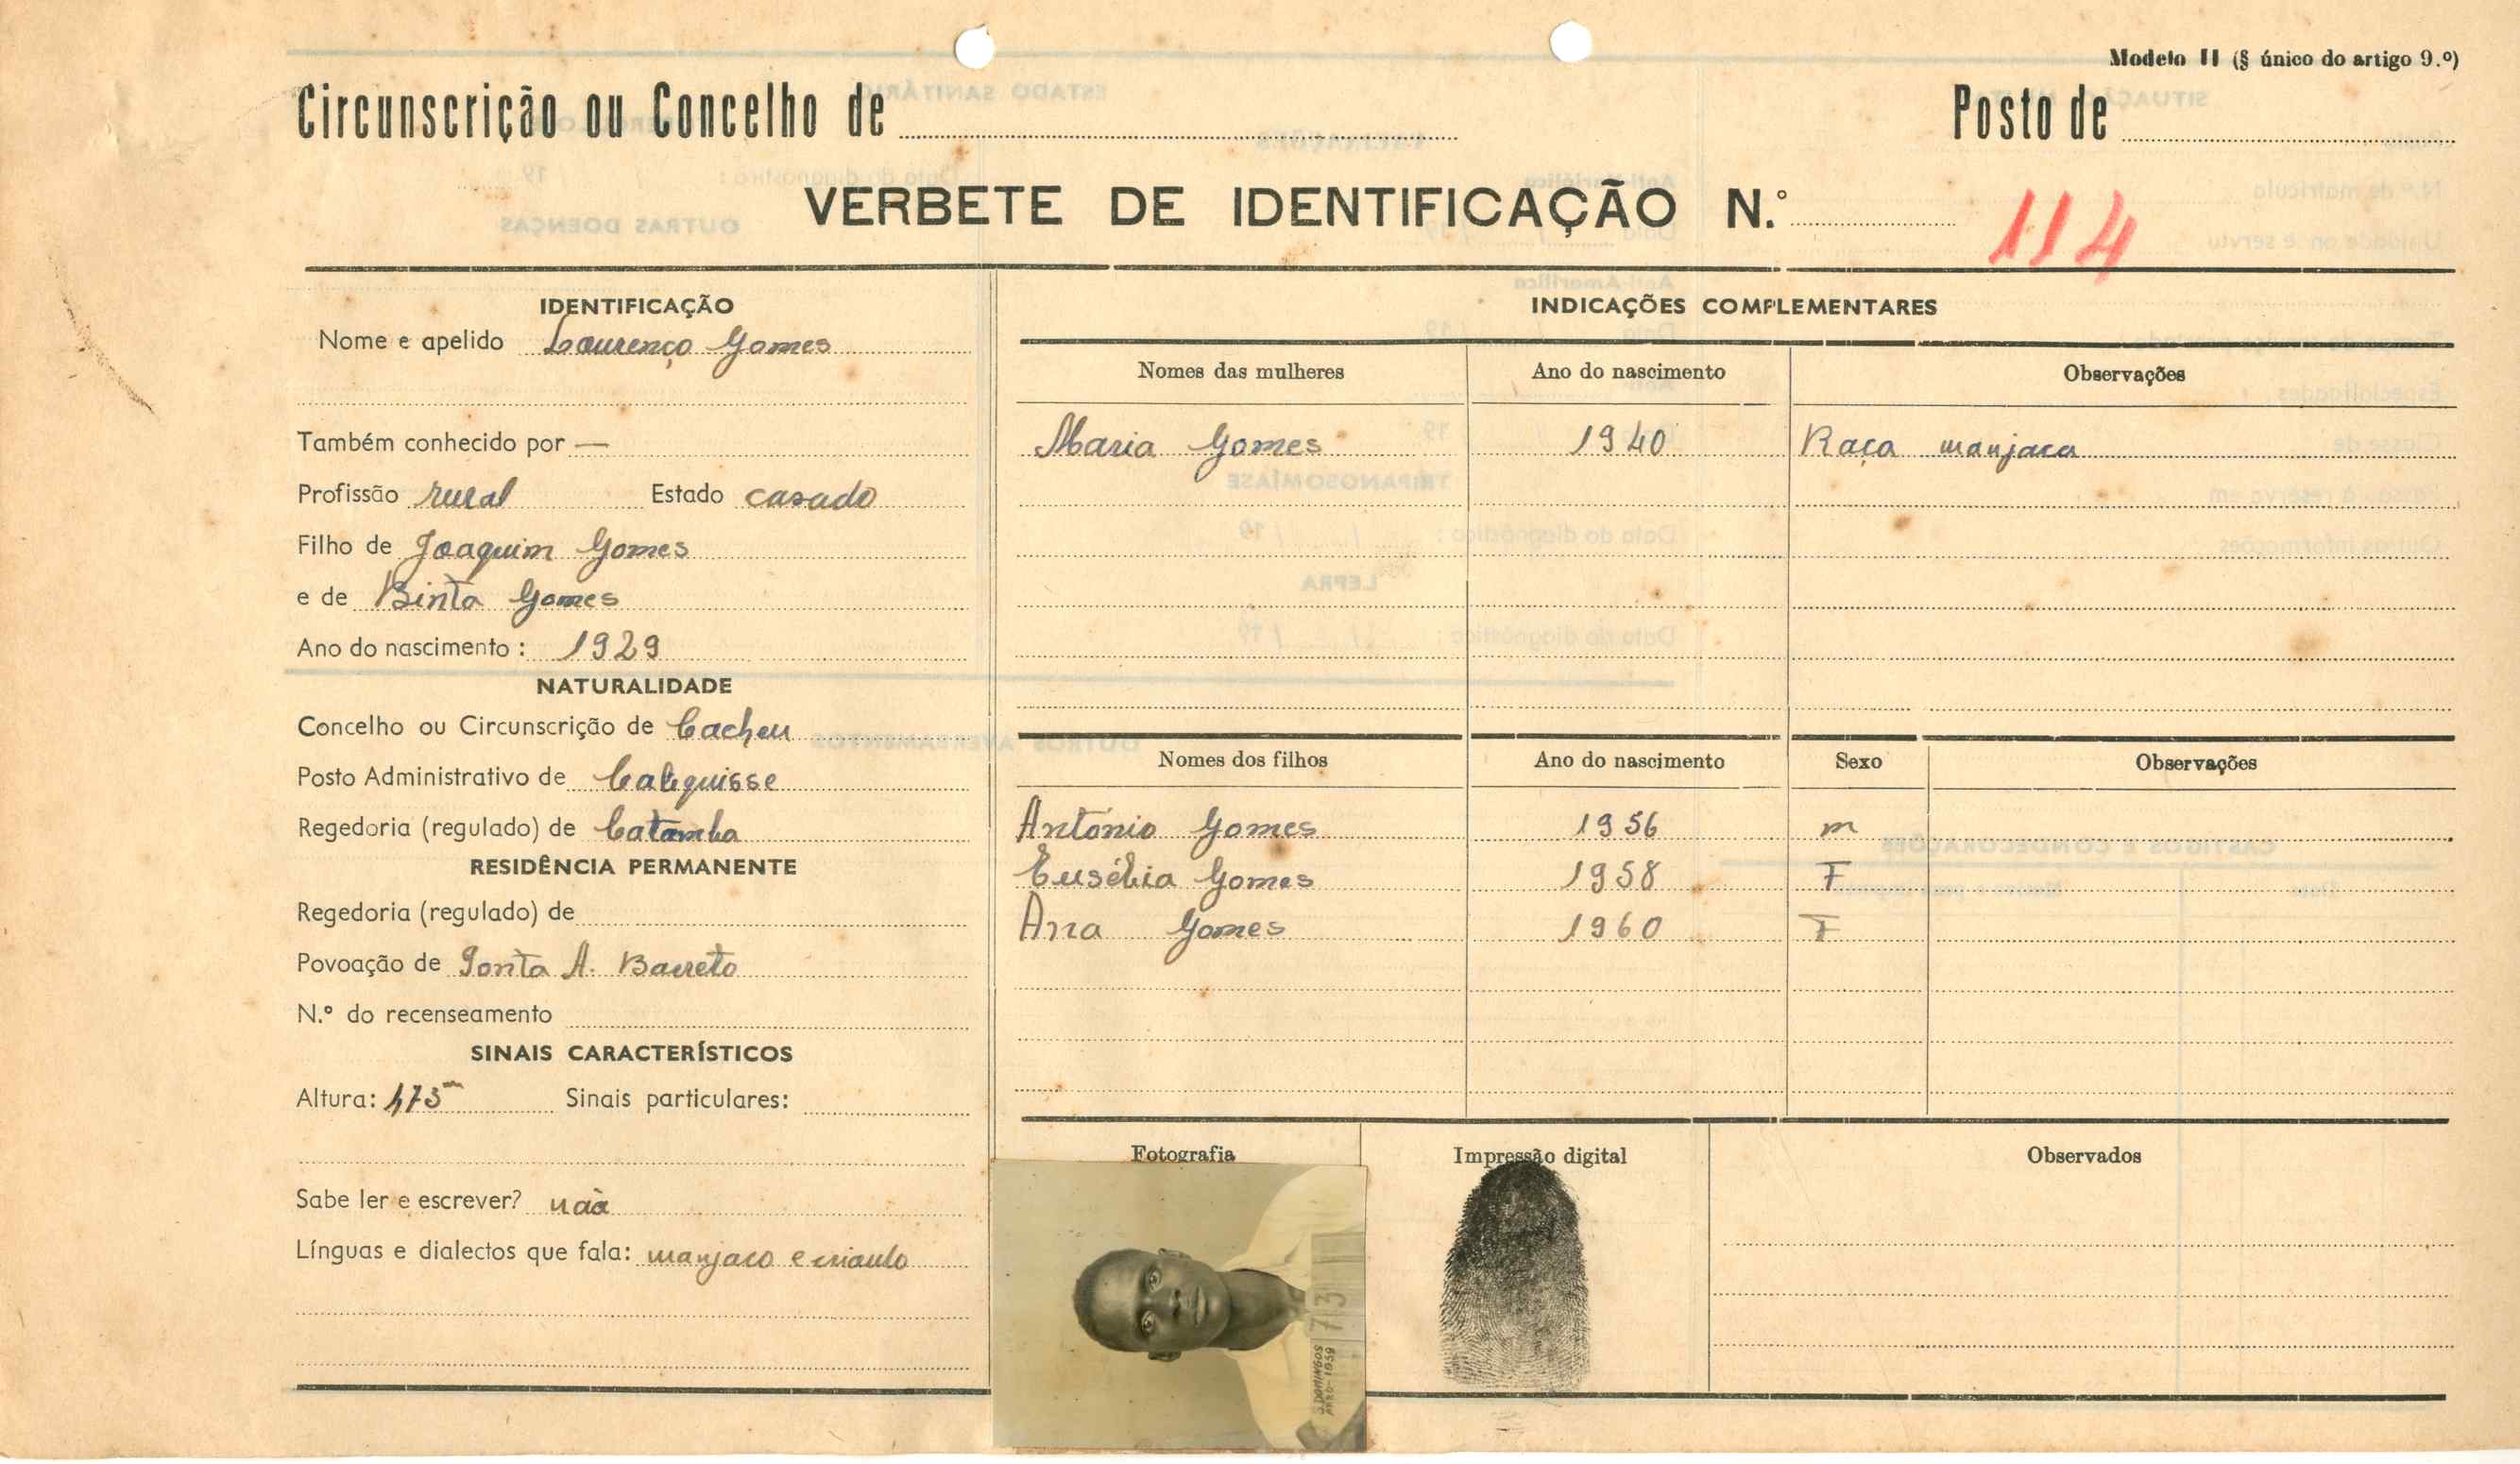 Modelo II (§ único do artigo 9.º)
Circunscrição ou Concelho de
Posto de
VERBETE DE IDENTIFICAÇÃO N.º 114
IDENTIFICAÇÃO
Nome e apelido Lourenço Gomes
Também conhecido por —
Profissão rural Estado casado
Filho de Joaquim Gomes
e de Binta Gomes
Ano do nascimento: 1929
NATURALIDADE
Concelho ou Circunscrição de Cacheu
Posto Administrativo de Calequisse
Regedoria (regulado) de Catamba
RESIDÊNCIA PERMANENTE
Regedoria (regulado) de
Povoação de Ponta A. Barreto
N.º do recenseamento
SINAIS CARACTERÍSTICOS
Altura: 1,73m Sinais particulares:
Sabe ler e escrever? não
Línguas e dialectos que fala: manjaco e crioulo
INDICAÇÕES COMPLEMENTARES
Nomes das mulheres Ano do nascimento Observações
Maria Gomes 1940 Raça manjaca
Nomes dos filhos Ano do nascimento Sexo Observações
António Gomes 1956 m
Eusébia Gomes 1958 F
Ana Gomes 1960 F
Fotografia Impressão digital Observados
731